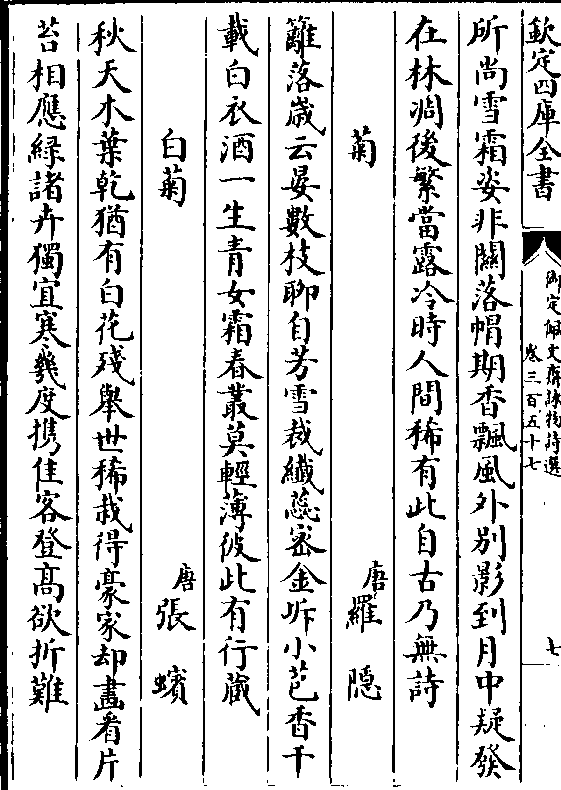 欽定四庫全書
御定佩文齋詠物詩選
卷三百五十七
七
所尚雪霜姿非關落帽期香飄風外別影到月中疑發
在林凋後繁當露冷時人間稀有此自古乃無詩
菊 唐羅隱
籬落歲云晏數枝聊自芳雪裁纖蕊密金坼小苞香千
載白衣酒一生青女霜春叢莫輕薄彼此有行藏
白菊 唐張蠙
秋天木葉乾猶有白花殘舉世稀栽得豪家却畫看片
苔相應綠諸卉獨宜寒幾度携佳客登高欲折難